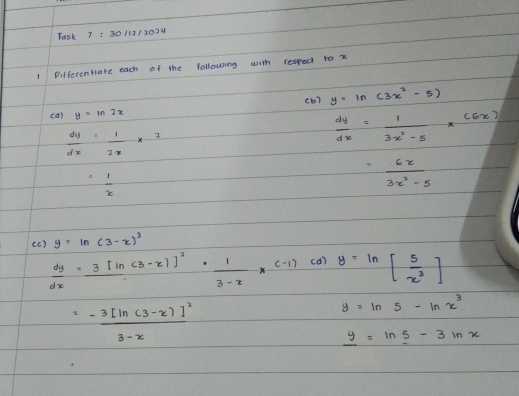 Task 7 : 30/12/2024
1 Differentiate each of the following with respect to x
(a) y = ln 2x
dy/dx = 1/2x × 2
= 1/x
(b) y = ln (3x² - 5)
dy/dx = 1/3x² - 5 × (6x)
= 6x/3x² - 5
(c) y = ln (3-x)³
dy/dx = 3 [ln (3-x)]² · 1/3-x × (-1)
= -3[ln (3-x)]²/3-x
(d) y = ln [5/x³]
y = ln 5 - ln x³
y = ln 5 - 3 ln x